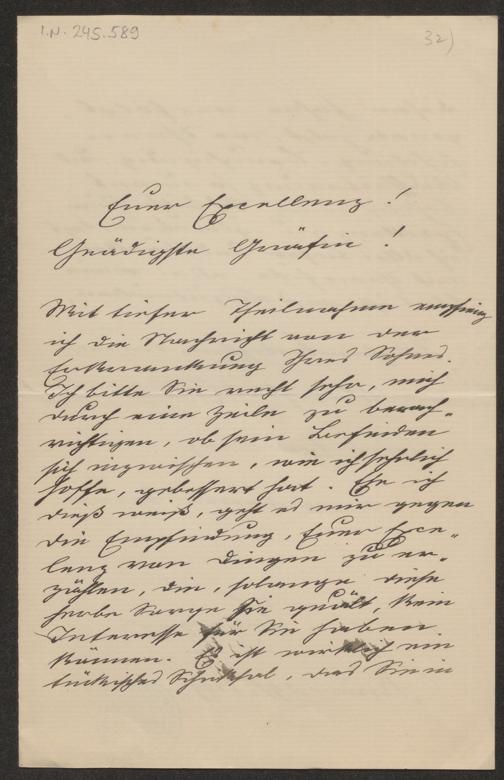 I.N. 245.589
32)
Euer Excellenz!
Gnädigste Gräfin!
Mit tiefer Theilnahme empfing
ich die Nachricht von der
Erkrankung Ihres Sohnes.
Ich bitte Sie recht sehr, mich
durch eine Zeile zu benach-
richtigen, ob sein Befinden
sich inzwischen, wie ich sehnlich
hoffe, gebessert hat. Ehe ich
dieß weiß, geht es mir gegen
die Empfindung, Euer Exce-
lenz von Dingen zu er-
zählen, die, solange diese
herbe Sorge Sie quält, kein
Interesse für Sie haben
können. Es ist wirklich ein
tückisches Schicksal, das Sie in